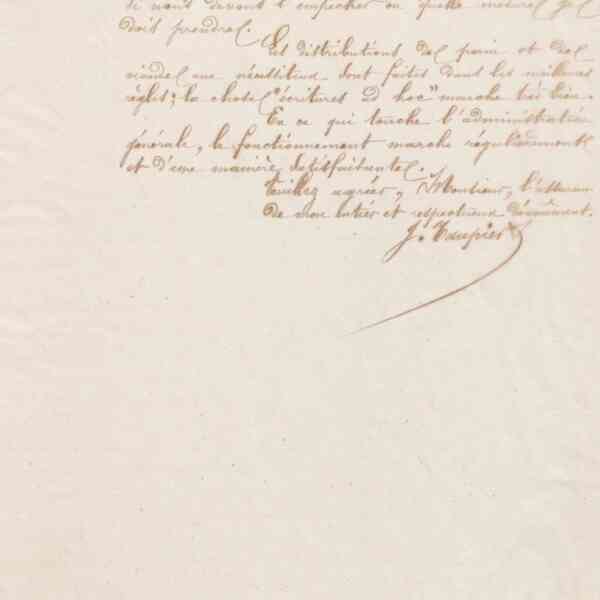 si nous devons l'empêcher ou quelle mesure je
dois prendre.
Les distributions de pain et de
viande aux nécessiteux sont faites dans les meilleures
règles; la chose "écritures ad hoc" marche très bien.
En ce qui touche l'administration
générale, le fonctionnement marche régulièrement
et d'une manière satisfaisante.
Veuillez agréer, Monsieur, l'assuran
de mon entier et respectueux dévouement.
J. Taupier